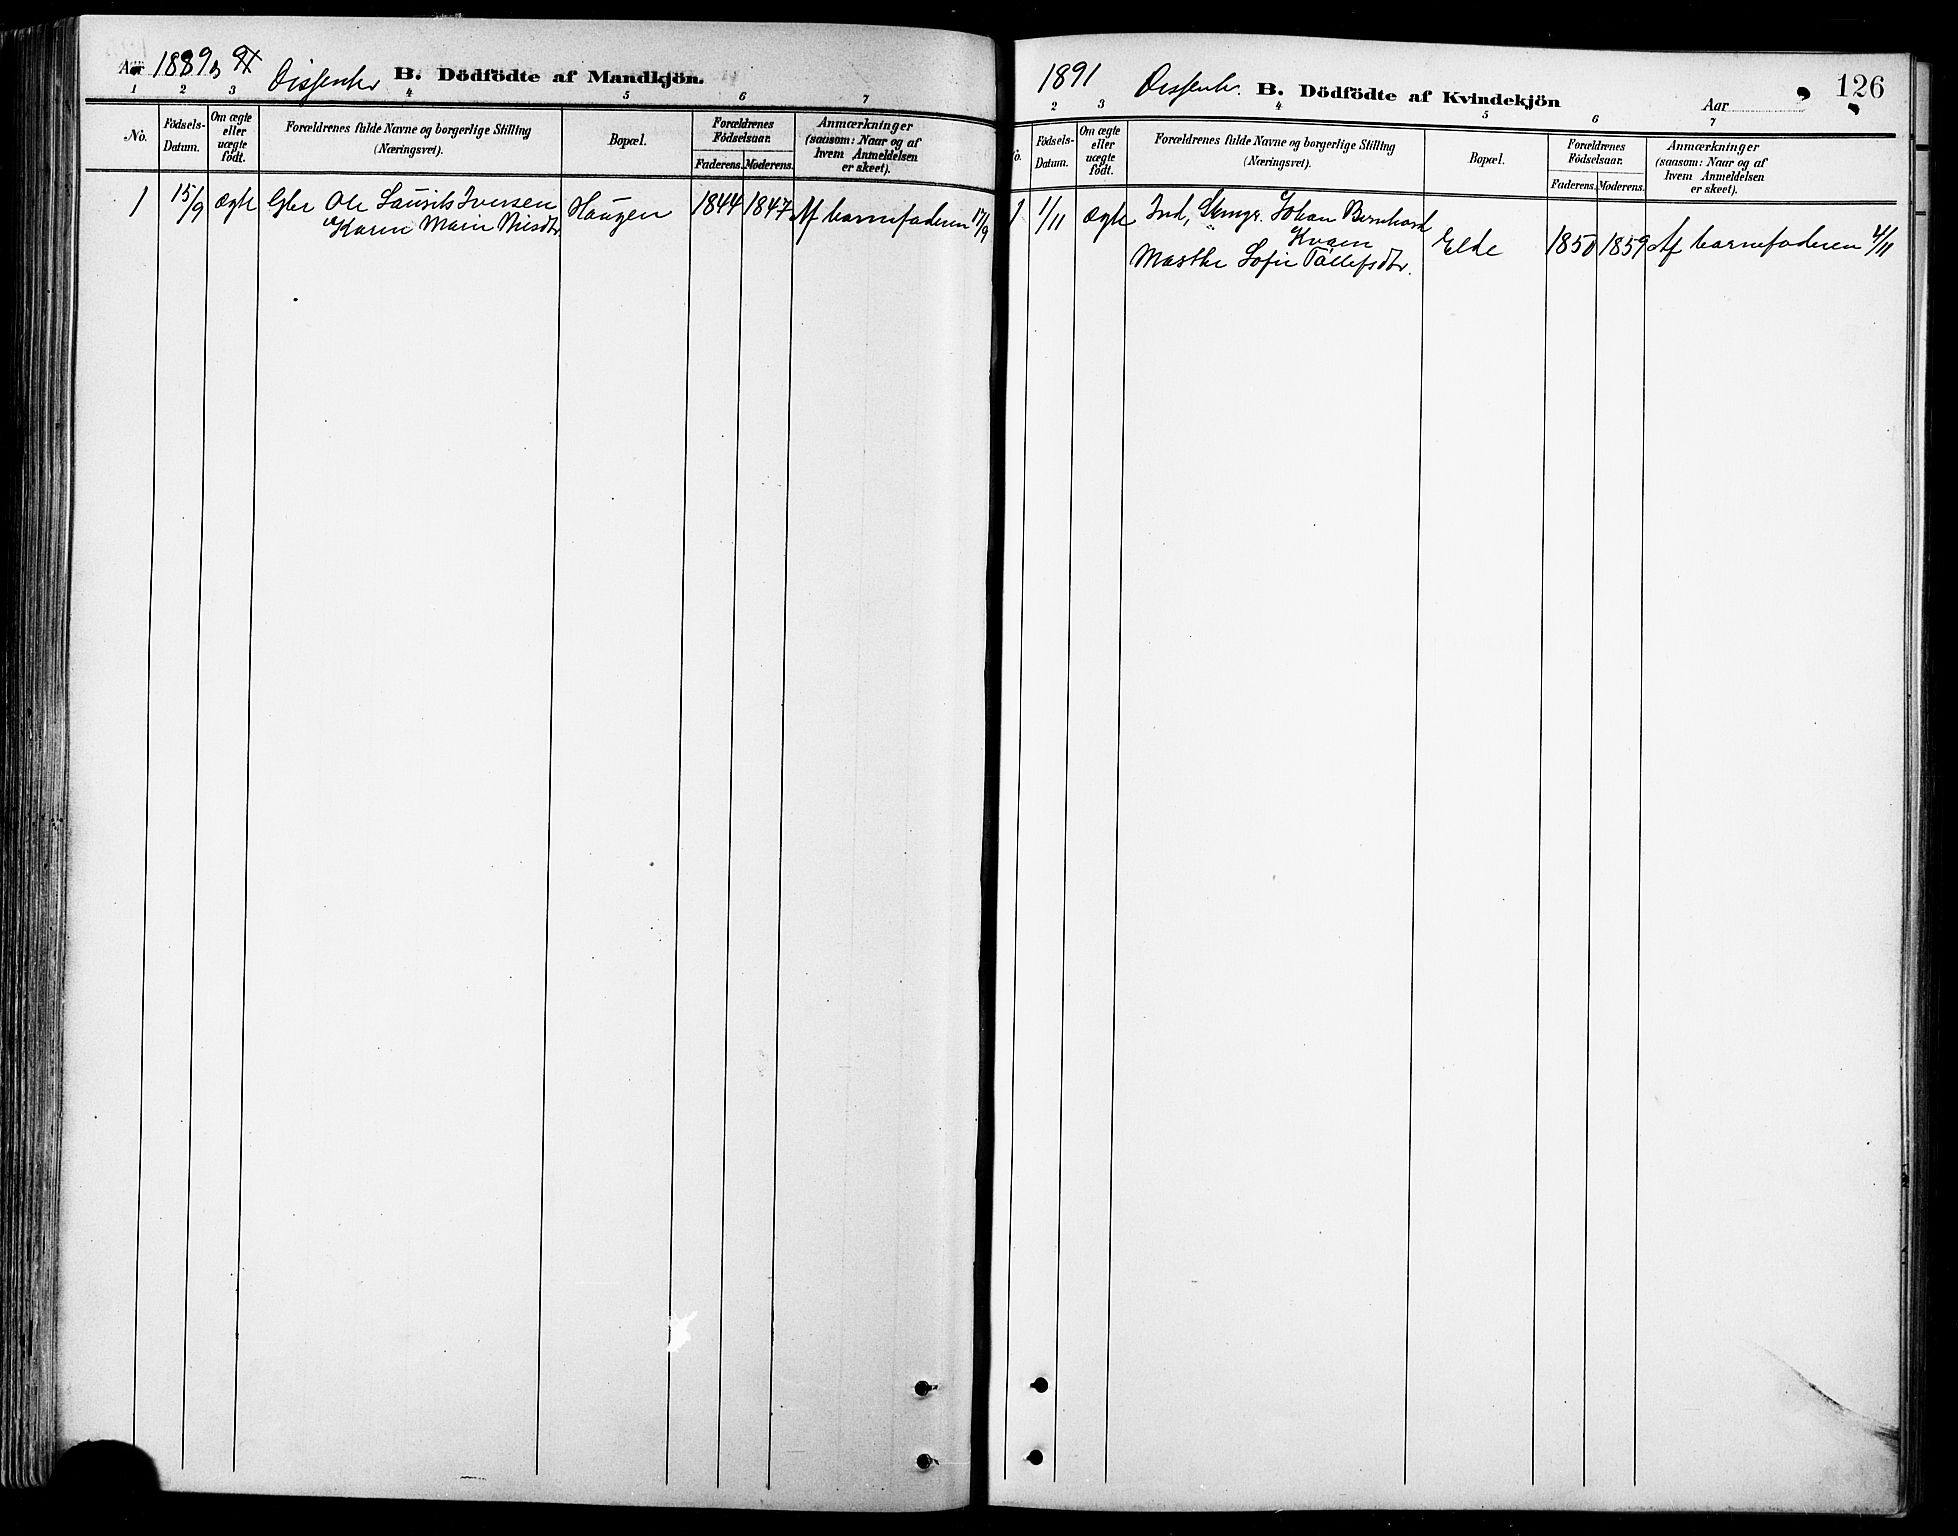 Aar 1889
Dissenter B. Dödfödte af Mandkjön.
1 2 3 4 5 6 7
No. Födsels-Datum. Om ægte eller uægte födt. Forældrenes fulde Navne og borgerlige Stilling (Næringsvei). Bopæl. Forældrenes Födselsaar. Faderens. Moderens. Anmærkninger (saasom: Naar og af hvem Anmeldelsen er skeet).
1 15/9 ægte Gbr Ole Laurits Iversen Haugen 1844 1847 Af barnefaderen 17/9
Karen Marie Nilsdtr
1891 Dissenter. B. Dödfödte af Kvindekjön Aar 126
2 3 4 5 6 7
No. Födsels-Datum. Om ægte eller uægte födt. Forældrenes fulde Navne og borgerlige Stilling (Næringsvei). Bopæl. Forældrenes Födselsaar. Faderens. Moderens. Anmærkninger (saasom: Naar og af hvem Anmeldelsen er skeet).
1 1/11 ægte Ind, Johan Bernhard
Kvam Elde 1850 1859 Af barnefaderen 4/11
Marthe Sofie Tollefsdtr.